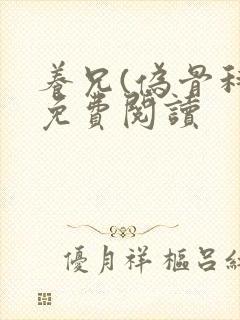 養兄(偽骨科
免費閱讀
優月祥樞呂紅